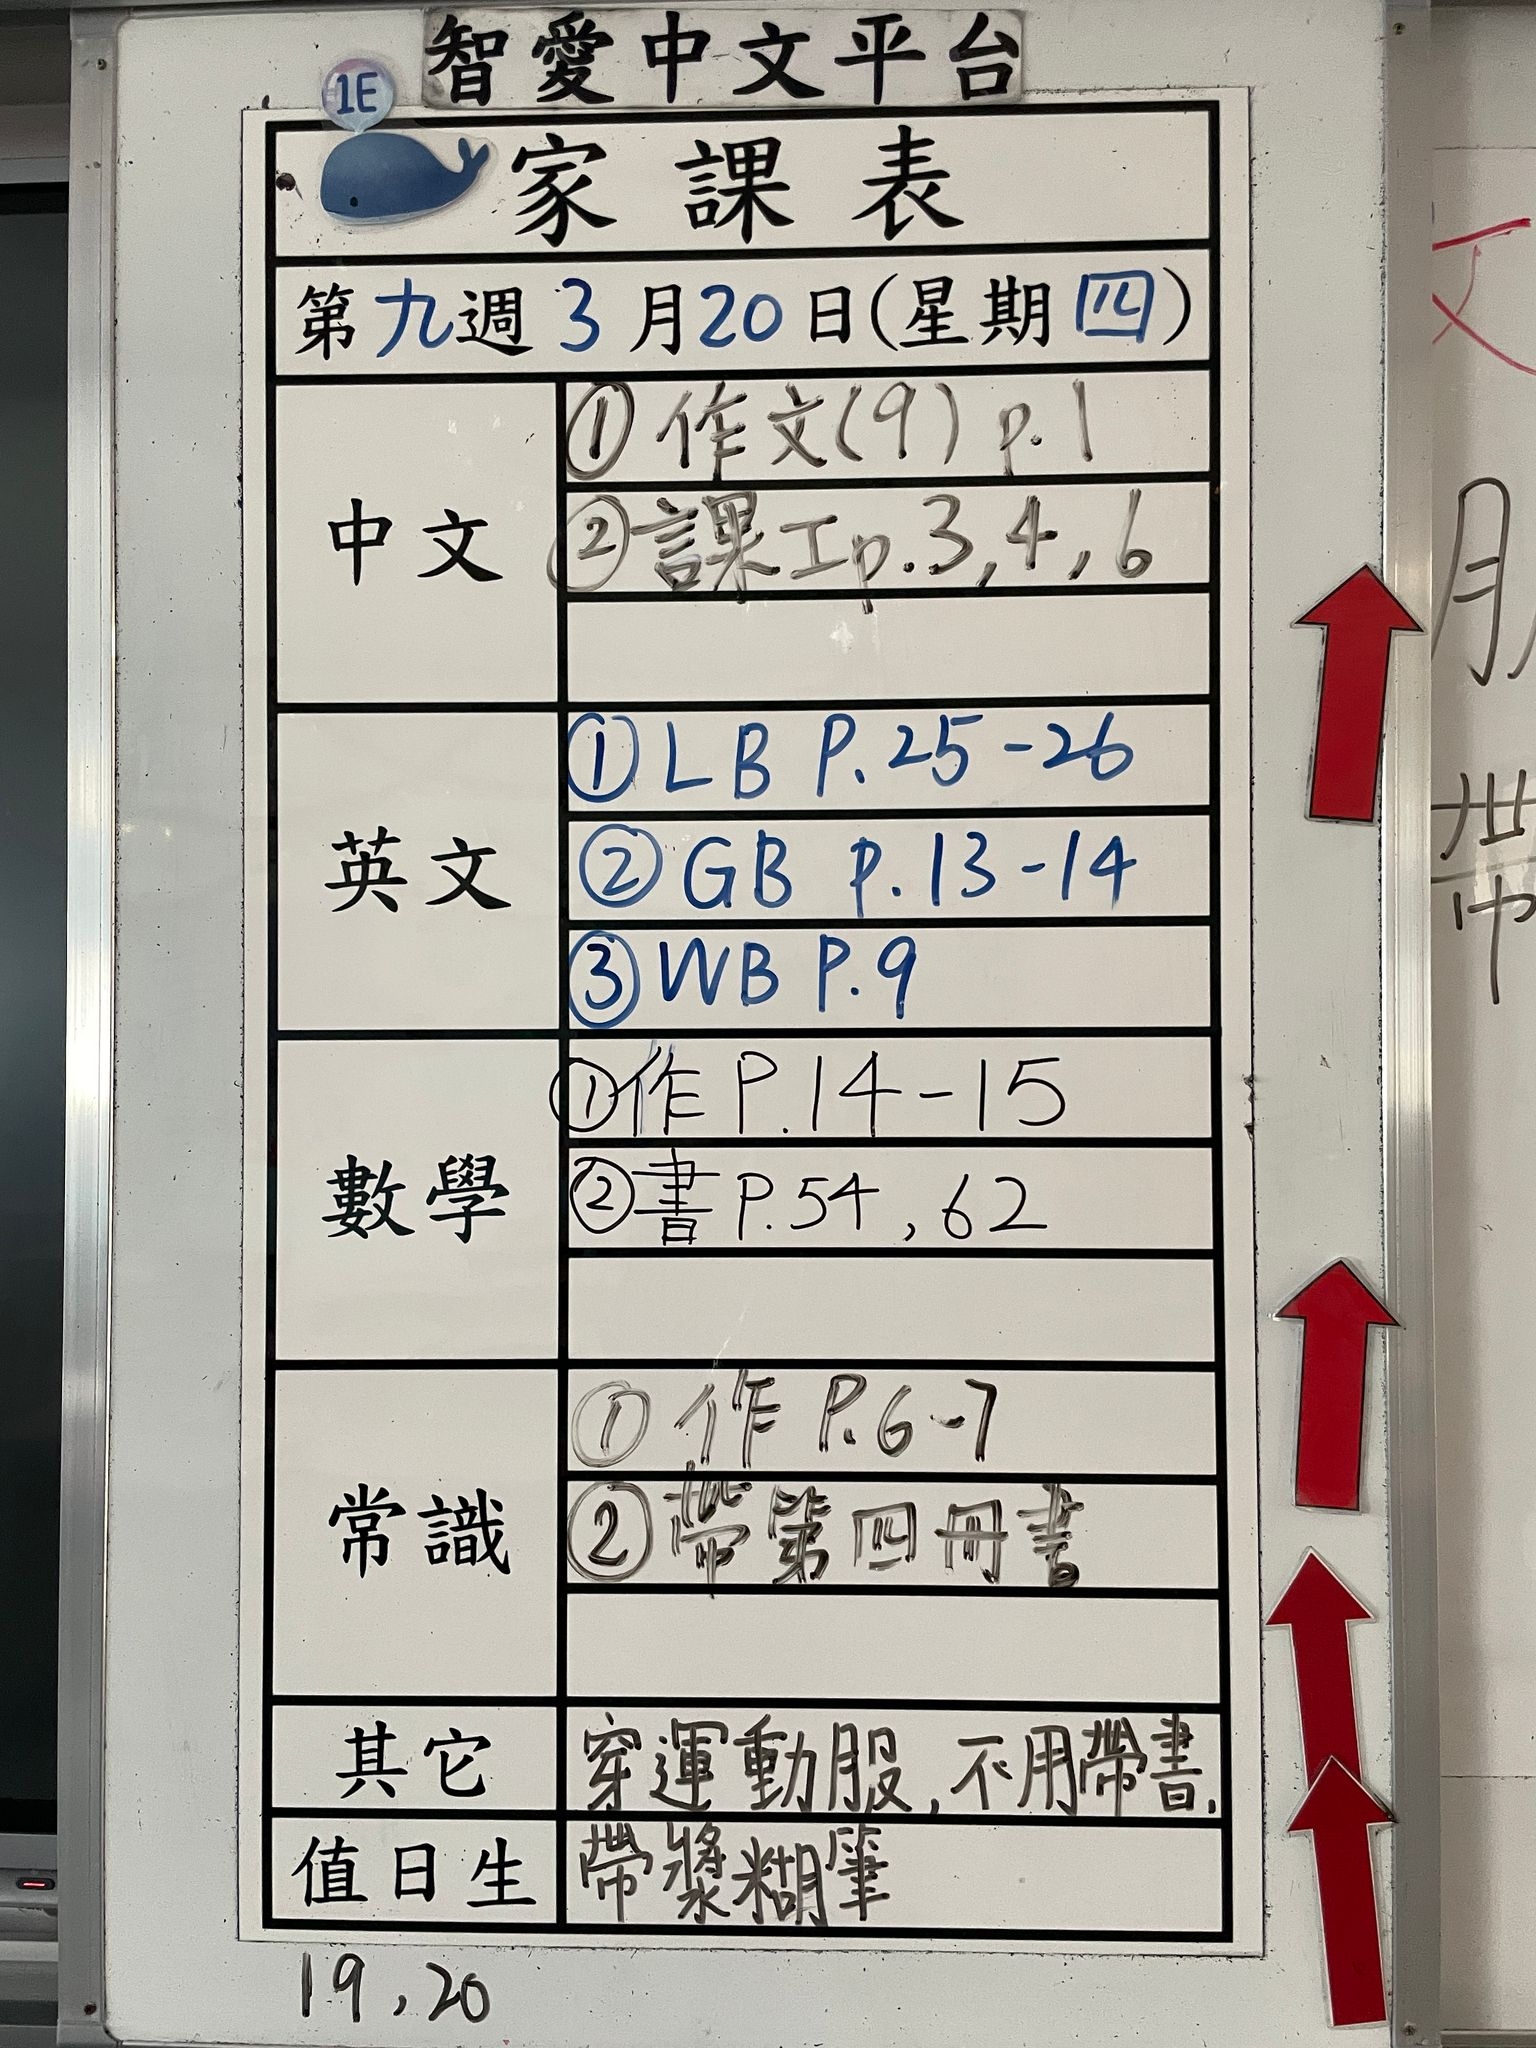 智愛中文平台
1E
家課表
第九週3月20日(星期四)
中文
①作文(9) p.1
②課工p.3,4,6
英文
①LB P.25-26
②GB P.13-14
③WB P.9
數學
①作 P.14-15
②書 P.54,62
常識
①作 P.6-7
②帶第四冊書
其它
穿運動服,不用帶書,
值日生
帶漿糊筆
19,20
文
月
帶